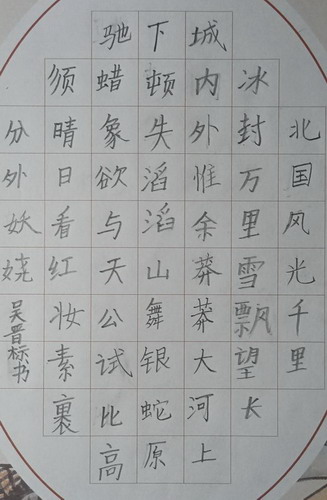 北国风光千里
冰封万里雪飘望长
城内外惟余莽莽大河上
下顿失滔滔山舞银蛇原
驰蜡象欲与天公试比高
须晴日看红妆素裹
分外妖娆
吴晋标书